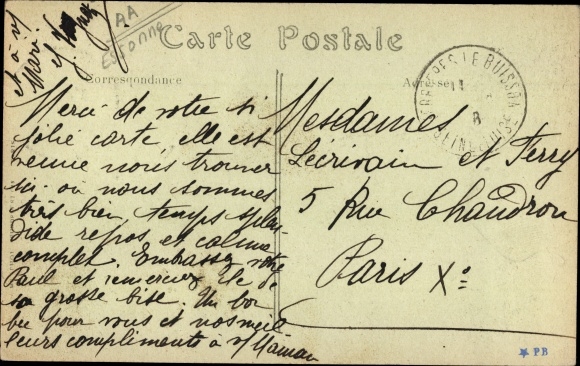 AA
Essonne
Carte Postale
Correspondance
Adresse
Merci de votre si
jolie carte, elle est
venue nous trouver
ici où nous sommes
très bien, temps splen-
dide repos, et calme
complet. Embrassez votre
Paul et remerciez le de
sa grosse bise. Un bon
bec pour vous et nos meil-
leurs compliments à v/ Maman
et à v/
Mari.
Mesdames
Lécrivain et Ferry
5 Rue Chaudron
Paris Xe
LE BUISSON
SEINE-ET-OISE
11
8
PB